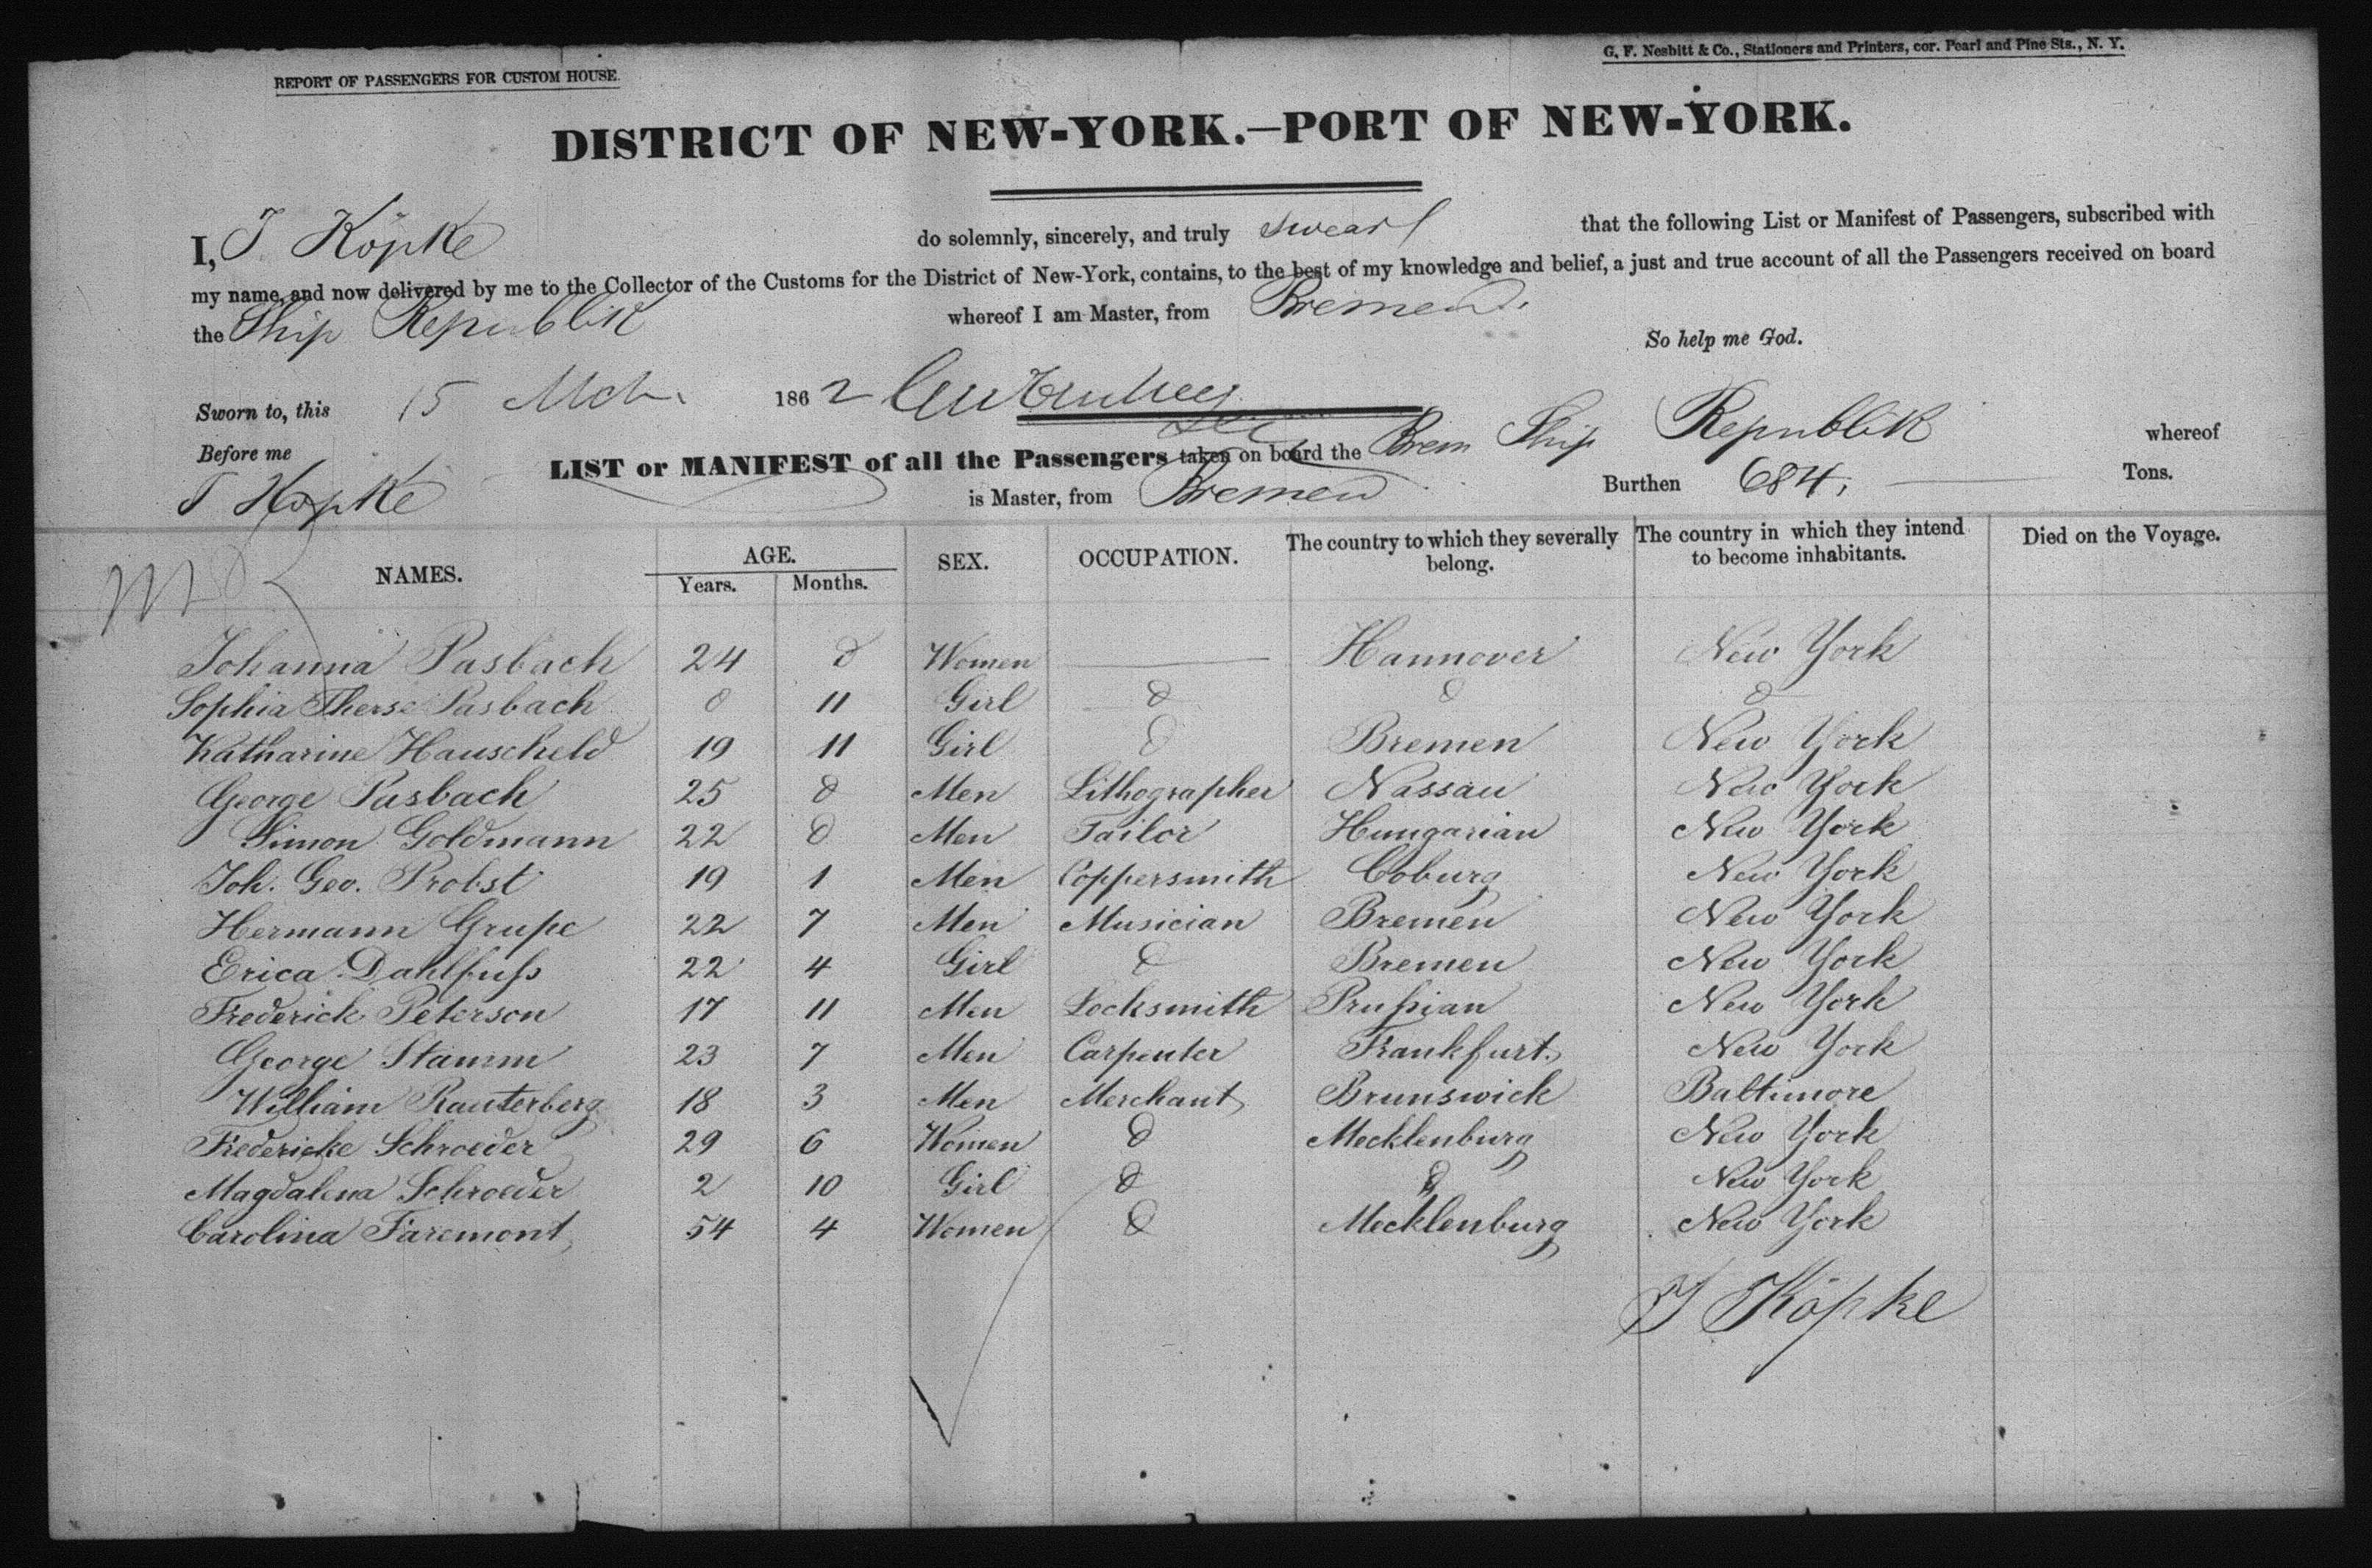 REPORT OF PASSENGERS FOR CUSTOM HOUSE.
G. F. Nesbitt & Co., Stationers and Printers, cor. Pearl and Pine Sts., N. Y.
DISTRICT OF NEW-YORK.—PORT OF NEW-YORK.
I, J Köpke do solemnly, sincerely, and truly swear that the following List or Manifest of Passengers, subscribed with
my name, and now delivered by me to the Collector of the Customs for the District of New-York, contains, to the best of my knowledge and belief, a just and true account of all the Passengers received on board
the Ship Republik whereof I am Master, from Bremen.
So help me God.
Sworn to, this 15 Mch. 1862
Before me
LIST or MANIFEST of all the Passengers taken on board the Brem Ship Republik whereof
J Köpke is Master, from Bremen Burthen 684, Tons.
NAMES. AGE. SEX. OCCUPATION. The country to which they severally belong. The country in which they intend to become inhabitants. Died on the Voyage.
Years. Months.
Johanna Pasbach 24 d Women — Hannover New York
Sophia Therse Pasbach d 11 Girl d d d
Katharine Hauscheld 19 11 Girl d Bremen New York
George Pasbach 25 d Men Lithographer Nassau New York
Simon Goldmann 22 d Men Tailor Hungarian New York
Joh. Geo. Probst 19 1 Men Coppersmith Coburg New York
Hermann Grupe 22 7 Men Musician Bremen New York
Erica Dahlfuſs 22 4 Girl d Bremen New York
Frederick Peterson 17 11 Men Locksmith Pruſsian New York
George Stamm 23 7 Men Carpenter Frankfurt. New York
William Rauterberg 18 3 Men Merchant Brunswick Baltimore
Fredericke Schroeder 29 6 Women d Mecklenburg New York
Magdalena Schroeder 2 10 Girl d d New York
Carolina Faremont 54 4 Women d Mecklenburg New York
J Köpke